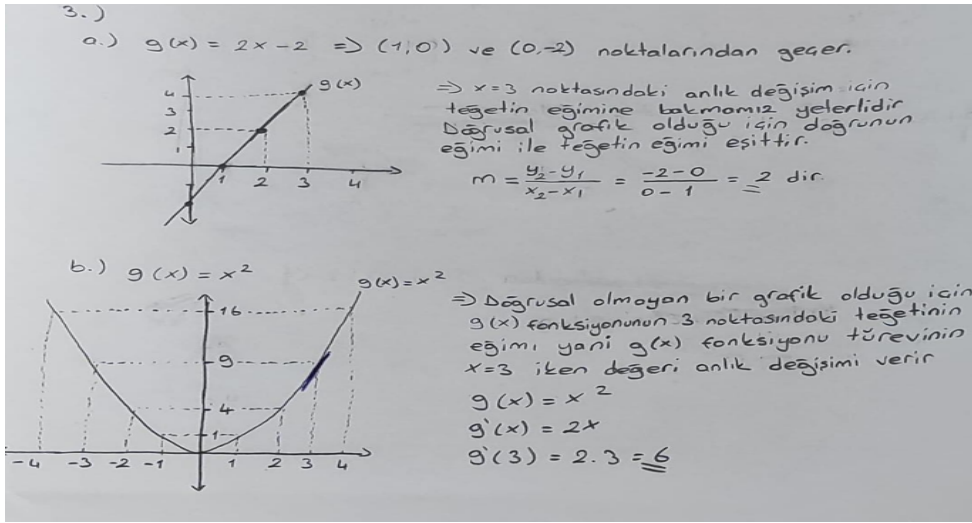 3.)
a.) g(x) = 2x-2 => (1,0) ve (0,-2) noktalarından geçer.
g(x)
4
3
2
1
1 2 3 4
=> x=3 noktasındaki anlık değişim için
teğetin eğimine bakmamız yeterlidir
Doğrusal grafik olduğu için doğrunun
eğimi ile teğetin eğimi eşittir.
m = y₂-y₁ / x₂-x₁ = -2-0 / 0-1 = 2 dir.
b.) g(x) = x²
g(x)=x²
16
9
4
1
-4 -3 -2 -1 1 2 3 4
=> Doğrusal olmayan bir grafik olduğu için
g(x) fonksiyonunun 3 noktasındaki teğetinin
eğimi, yani g(x) fonksiyonu türevinin
x=3 iken değeri anlık değişimi verir
g(x) = x²
g'(x) = 2x
g'(3) = 2.3 = 6